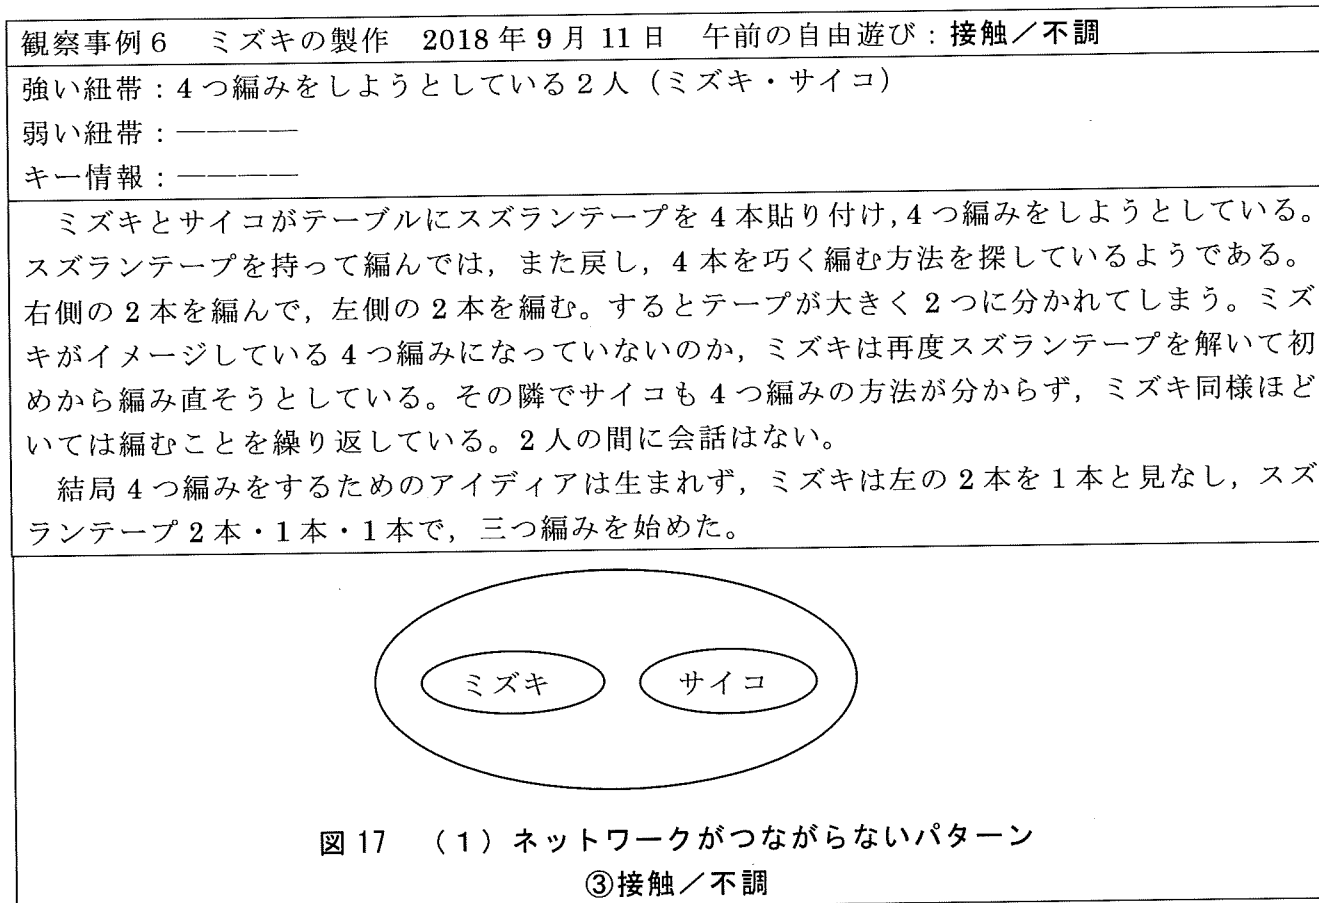 観察事例6　ミズキの製作　2018年9月11日　午前の自由遊び：接触／不調
強い紐帯：4つ編みをしようとしている2人（ミズキ・サイコ）
弱い紐帯：――――
キー情報：――――
ミズキとサイコがテーブルにスズランテープを4本貼り付け，4つ編みをしようとしている。
スズランテープを持って編んでは，また戻し，4本を巧く編む方法を探しているようである。
右側の2本を編んで，左側の2本を編む。するとテープが大きく2つに分かれてしまう。ミズ
キがイメージしている4つ編みになっていないのか，ミズキは再度スズランテープを解いて初
めから編み直そうとしている。その隣でサイコも4つ編みの方法が分からず，ミズキ同様ほど
いては編むことを繰り返している。2人の間に会話はない。
結局4つ編みをするためのアイディアは生まれず，ミズキは左の2本を1本と見なし，スズ
ランテープ2本・1本・1本で，三つ編みを始めた。
ミズキ
サイコ
図17　（1）ネットワークがつながらないパターン
③接触／不調